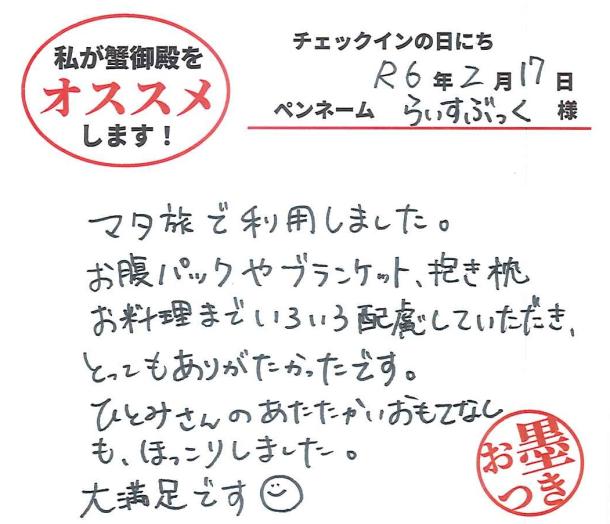 私が蟹御殿を
オススメ
します！
チェックインの日にち
R6年2月17日
ペンネーム らいすぶっく 様
マタ旅で利用しました。
お腹パックやブランケット、抱き枕
お料理までいろいろ配慮していただき、
とってもありがたかったです。
ひとみさんのあたたかいおもてなし
も、ほっこりしました。
大満足です
お墨
つき